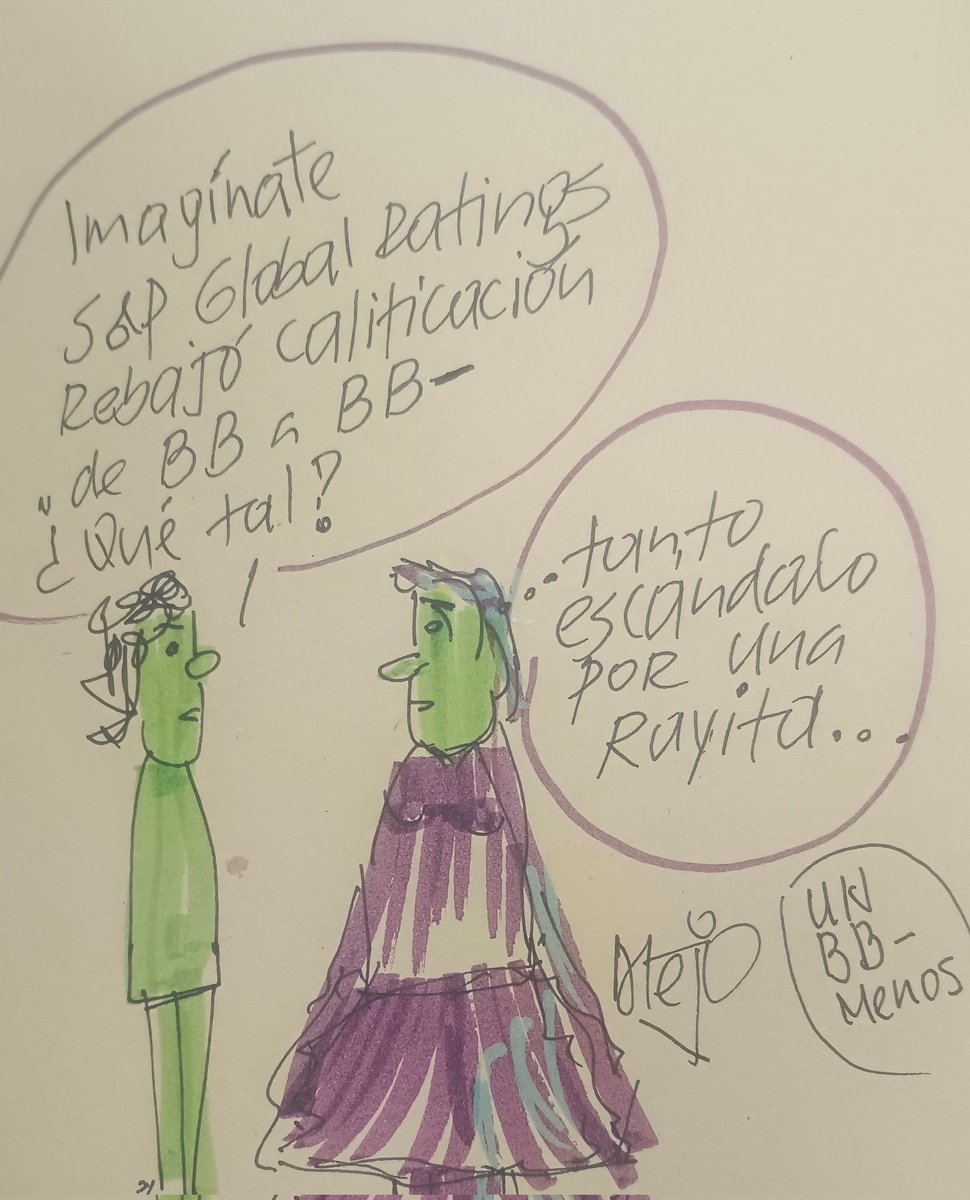 Imagínate
S&P Global Ratings
Rebajó calificación
de BB a BB-
¿Qué tal?
..tanto
escándalo
por una
Rayita...
Alejo
UN
BB-
Menos